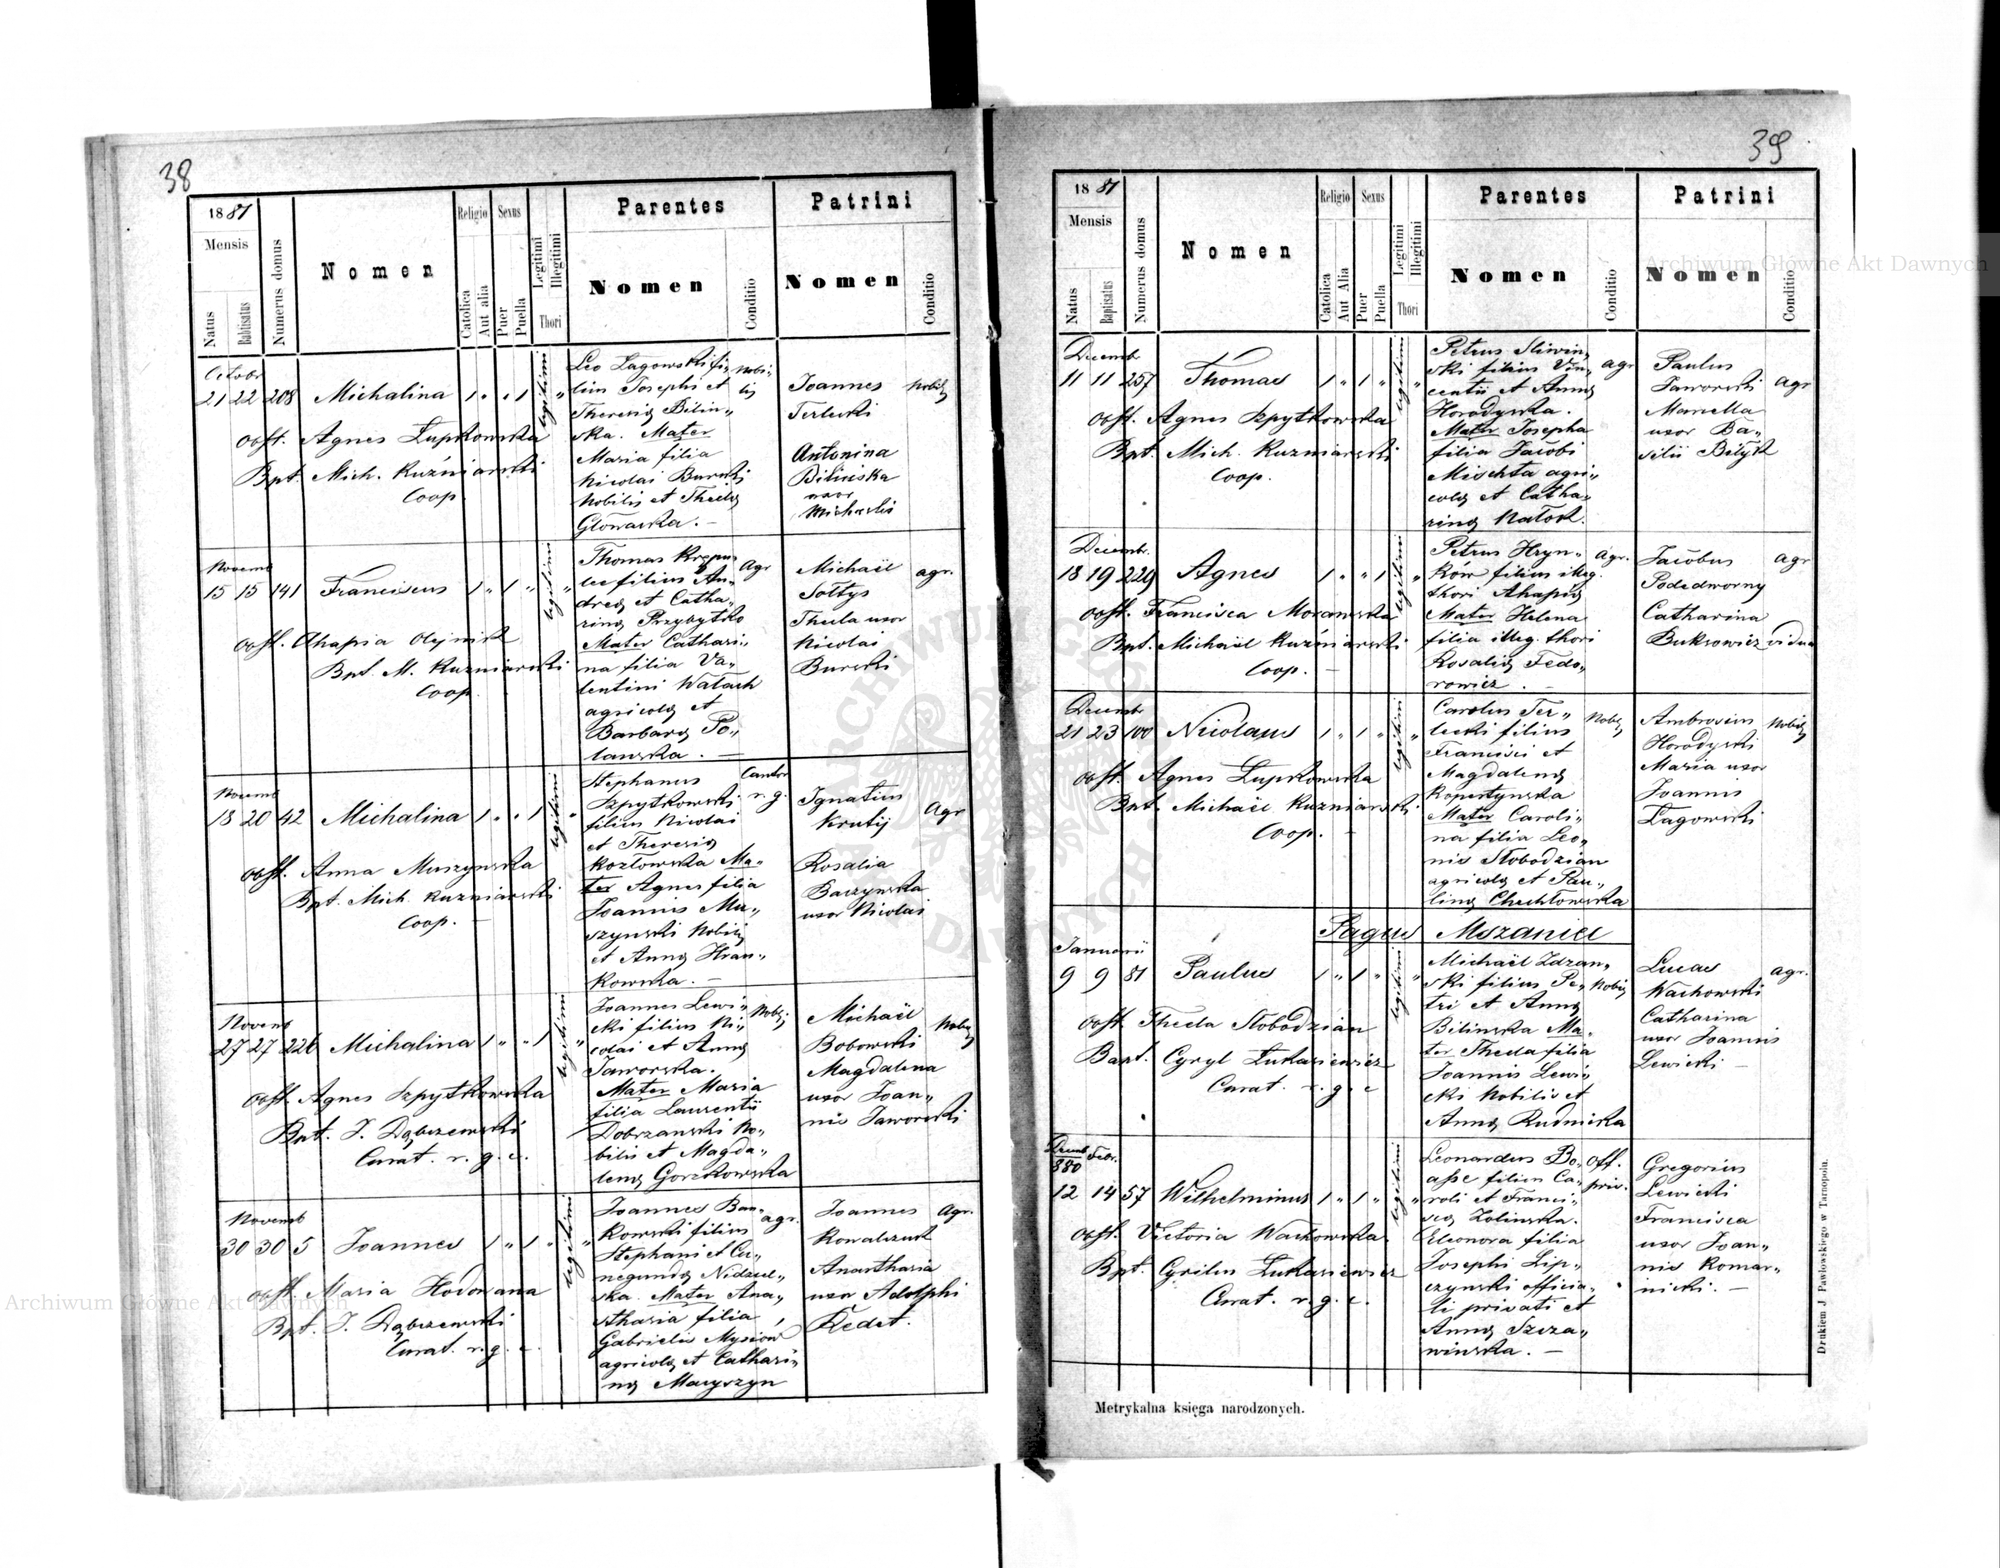 38
1881
Mensis
Natus
Babtisatus
Numerus domus
Nomen
Religio
Catolica
Aut alia
Sexus
Puer
Puella
Legitimi
Illegitimi
Thori
Parentes
Nomen
Conditio
Patrini
Nomen
Conditio
Octobr
21 22 208 Michalina 1 „ „ 1 legitimi „
obst. Agnes Łupkowska
Bpt. Mich. Kuźniarski
Coop.
Leo Łagowski fi-
lius Josephi et
Theresiæ Bilin„
ska. Mater
Maria filia
Nicolai Burski
Nobilis et Theclæ
Głowacka. —
Nobi-
lis
Joannes
Terlecki
Antonina
Bilińska
uxor
Michaelis
Nobilis
Novemb
15 15 141 Franciscus 1 „ 1 „ legitimi „
obst. Ahapia Olejnik
Bpt. M. Kuzniarski
Coop.
lec filius An„
dreæ et Catha„
rinæ Przybytko
Mater Cathari„
na filia Va„
lentini Wałach
agricolæ et
Barbaræ Po„
lanska. —
Agr
Michaël
Sołtys
Thecla uxor
Nicolai
Burski
agr.
Novemb
18 20 42 Michalina 1 „ „ 1 legitimi „
obst. Anna Muszynska
Bpt. Mich. Kuzniarski
Coop. —
Stephanus
Szpytkowski
filius Nicolai
et Theresiæ
Kozłowska Ma„
ter Agnes filia
Joannis Mu„
szynski Nobilis
et Annæ Hran„
kowska. —
Cantor
r. g.
Ignatius
Krutij
Rosalia
Baczynska
uxor Nicolai
Agr
Novemb
27 27 226 Michalina 1 „ „ 1 legitimi „
obst. Agnes Szpytkowska
Bpt. J. Dąbczewski
Curat. r. g. c.
Joannes Lewi„
cki filius Ni„
colai et Annæ
Jaworska.
Mater Maria
filia Laurentii
Dobrzanski No„
bilis et Magda„
lenæ Gorzkowska
Nobilis
Michaël
Bobowski
Magdalena
uxor Joan„
nis Jaworski
Nobilis
Novemb
30 30 5 Joannes 1 „ 1 „ legitimi „
obst. Maria Hodowana
Bpt. J. Dąbczewski
Curat. r. g. c.
Joannes Ban„
kowski filius
Stephani et Cu„
negundæ Nidziel„
ska. Mater Ana„
sthasia filia
Gabrielis Mysiów
agricolæ et Cathari„
næ Macyszyn
agr.
Joannes
Kowalczuk
Anasthasia
uxor Adolphi
Fedet.
Agr.
39
1881
Mensis
Natus
Baptisatus
Numerus domus
Nomen
Religio
Catolica
Aut Alia
Sexus
Puer
Puella
Legitimi
Illegitimi
Thori
Parentes
Nomen
Conditio
Patrini
Nomen
Conditio
Decembr
11 11 257 Thomas 1 „ 1 „ legitimi „
obst. Agnes Szpytkowska
Bpt. Mich. Kuzniarski
Coop.
Petrus Sliwin„
ski filius Vin„
centii et Annæ
Horodyska.
Mater Josepha
filia Jacobi
Mischta agri„
colæ et Catha„
rinæ Natok.
agr
Paulus
Jaworski
Marcella
uxor Ba„
silii Biłyk
agr
Decembr.
18 19 229 Agnes 1 „ „ 1 legitimi „
obst. Francisca Morawska
Bpt. Michaël Kuźniarski
Coop. —
Petrus Hryn„
ków filius illeg.
thori Ahapiæ
Mater Helena
filia illeg. thori
Rosaliæ Fedo„
rowicz. —
Agr.
Jacobus
Podedworny
Catharina
Bukrowicz vidua
agr
Decembr
21 23 100 Nicolaus 1 „ 1 „ legitimi „
obst. Agnes Łupkowska
Bpt. Michaël Kuzniarski
Coop. —
Carolus Ter„
lecki filius
Francisci et
Magdalenæ
Kopertynska
Mater Caroli„
na filia Leo„
nis Słobodzian
agricolæ et Pau„
linæ Chechłowska
Nobilis
Ambrosius
Horodyski
Maria uxor
Joannis
Łagowski
Nobilis
Pagus Mszaniec
Januarii
9 9 81 Paulus 1 „ 1 „ legitimi „
obst Thecla Słobodzian
Bapt. Cyryl Łukasiewicz
Curat. r. g. c
Michaël Zdzan„
ski filius Pe„
tri et Annæ
Bilinska Ma„
ter Thecla filia
Joannis Lewi„
cki Nobilis et
Annæ Rudnicka
Nobilis
Lucas
Wachowski
Catharina
uxor Joannis
Lewicki —
agr.
Decemb Febr.
880
12 14 57 Wilhelminus 1 „ 1 „ legitimi „
obst. Victoria Wachowska
Bpt. Cyrilus Łukasiewicz
Curat. r. g. c.
Leonardus Bo„
filius Ca„
roli et Franci„
scæ Zolinska.
Eleonora filia
Josephi Lip„
czynski officia„
li privati et
Annæ Szcza„
winska. —
off.
priv.
Gregorius
Lewicki
Francisca
uxor Joan„
nis Komar„
nicki. —
Metrykalna księga narodzonych.
Drukiem J Pawłowskiego w Tarnopolu.
Archiwum Główne Akt Dawnych
Archiwum Główne Akt Dawnych
ARCHIWUM GŁÓWNE AKT DAWNYCH